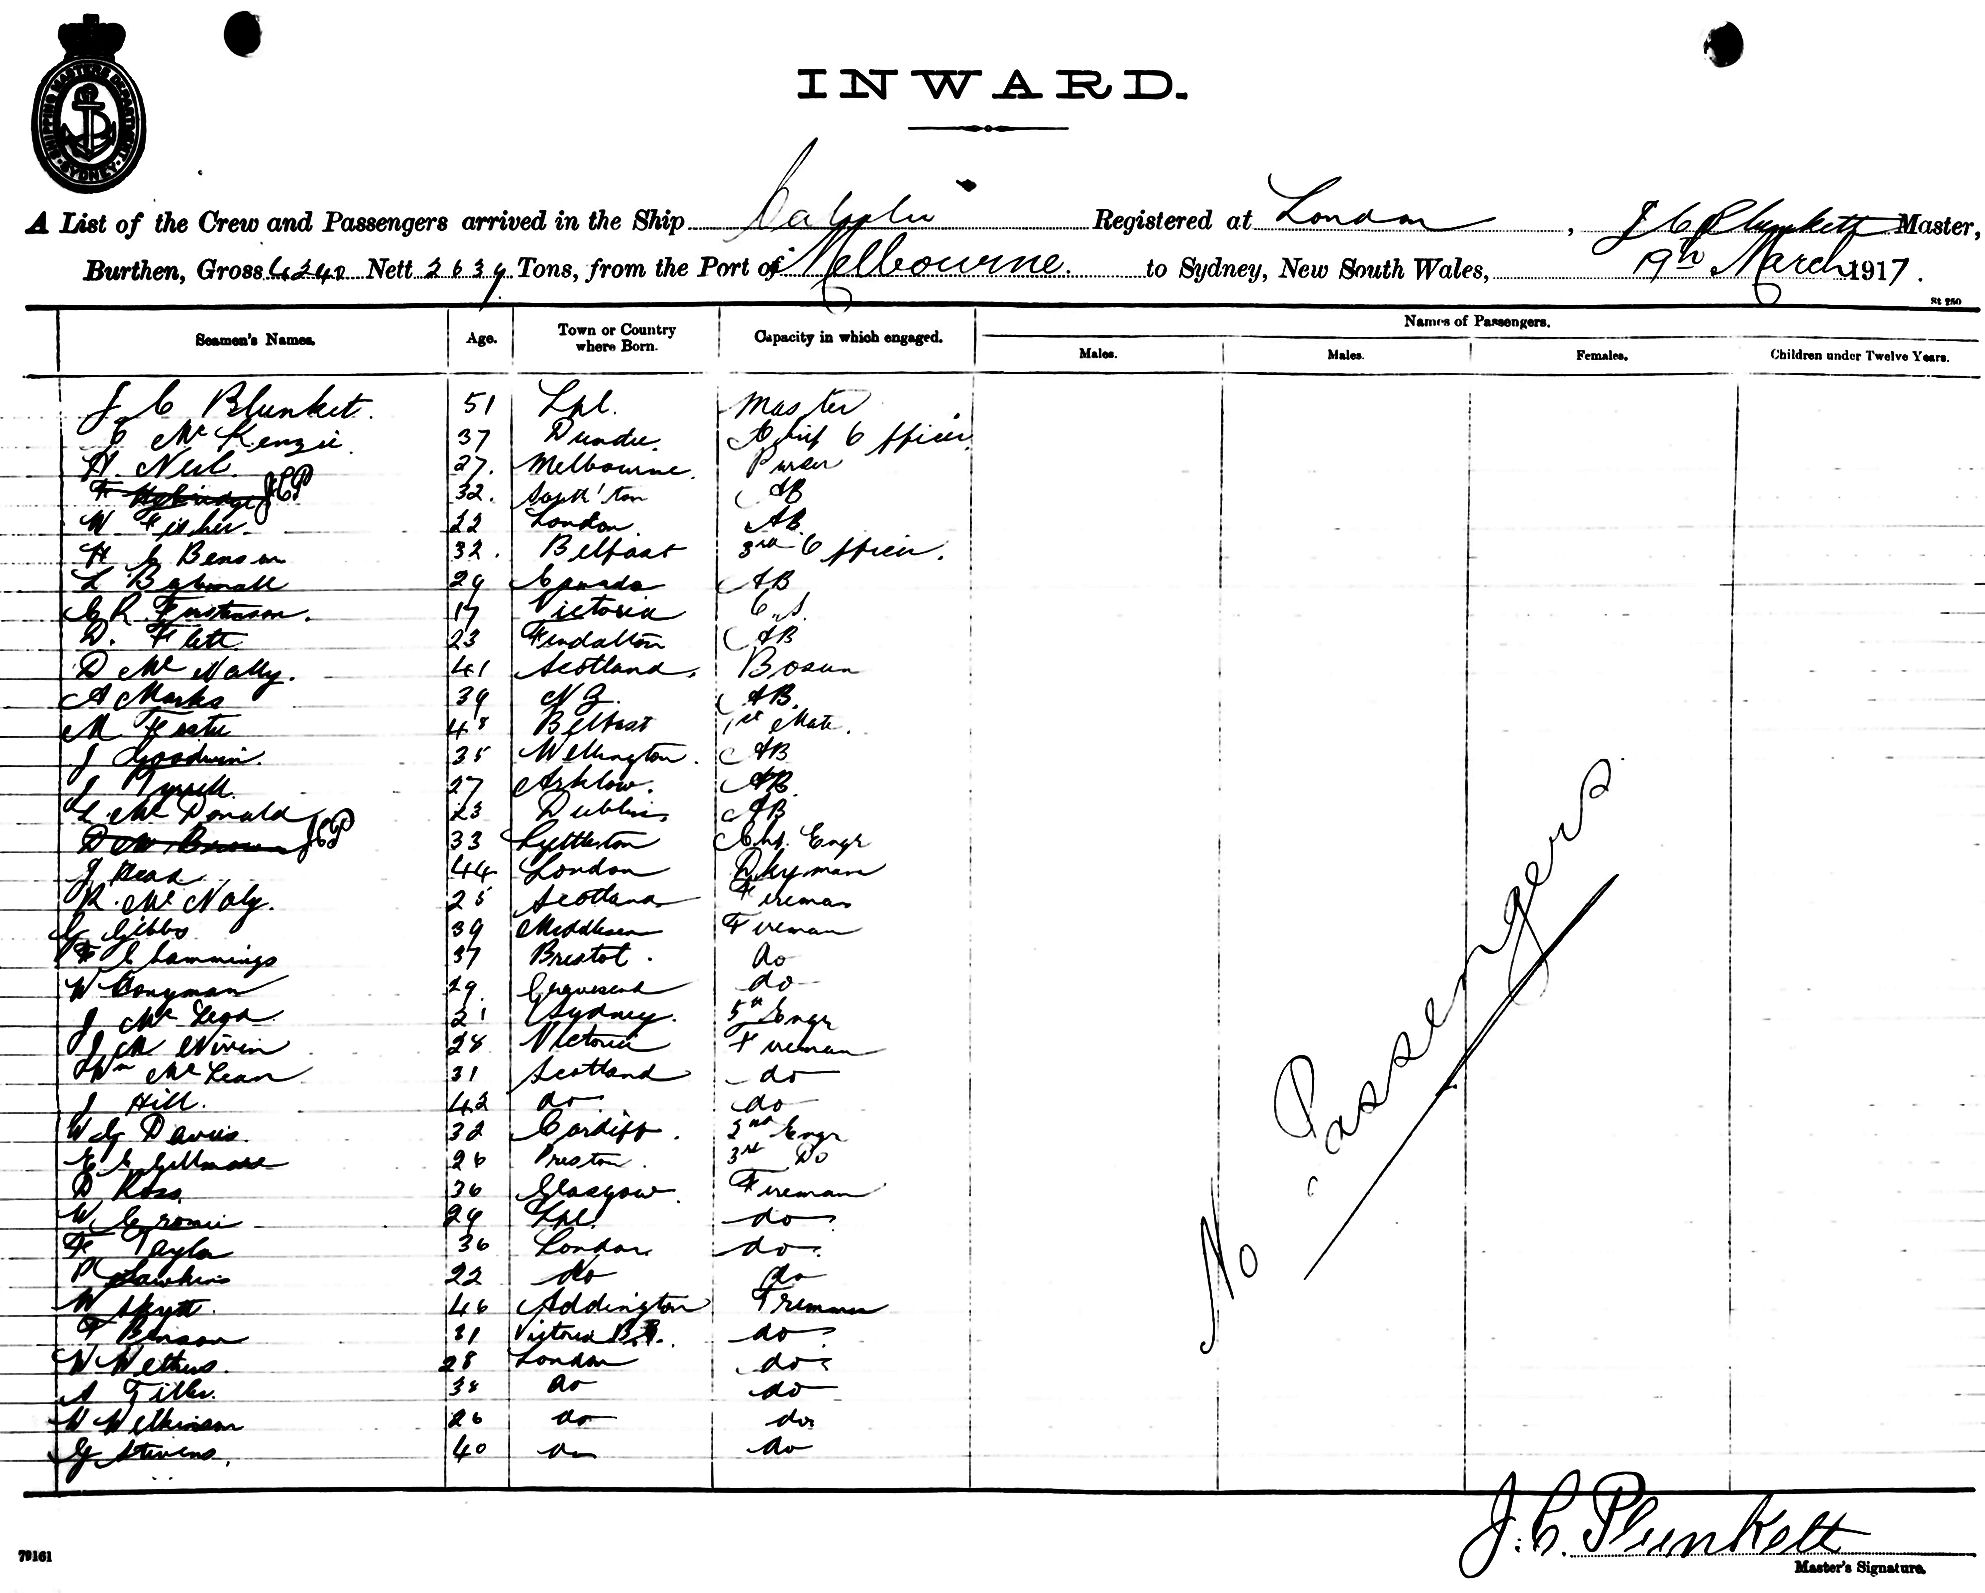 SHIPPING MASTERS DEPARTMENT SYDNEY
INWARD.
A List of the Crew and Passengers arrived in the Ship Registered at London, J C Plunkett Master,
Burthen, Gross 4240 Nett 2639 Tons, from the Port of Melbourne. to Sydney, New South Wales, 19th March 1917.
St 250
Seamen's Names. Age. Town or Country where Born. Capacity in which engaged. Names of Passengers.
Males. Males. Females. Children under Twelve Years.
J C Blunket. 51 Lpl. Master
C McKenzie 37 Dundee. Chief Officer
H. Neil. 27. Melbourne. Purser
F JCP 32. South'ton AB
W Fisher. 22 London AB
H C Benson 32. Belfast 3rd Officer.
L 29 Canada AB
C R 17 Victoria O.S.
D. Flett 23 AB
D McNally. 41 Scotland. Bosun
A Marks 39 NZ. AB.
M 48 Belfast 1st Mate.
J Goodwin. 35 Wellington. AB
J Tyrrell. 27 Arklow. AB.
L McDonald 23 Dublin AB
D W Brown JCP 33 Lyttleton Chf. Engr
J Read 44 London Dkyman
R. McNaly. 25 Scotland Fireman
G Gibbs 39 Middlesex Fireman
F Cummings 37 Bristol. do
W 29. Gravesend do
J McLeod 21 Sydney. 5th Engr
J M Nivin 28 Victoria Fireman
Wm McLean 31 Scotland do
J Hill. 42 do do
W G Davies. 32 Cardiff. 2nd Engr
E E Gillmore 26 Preston. 3rd Do
D Ross. 36 Glasgow. Fireman
W Cromie 29 Lpl. do
F Taylor 36 London do.
P Hawkins 22 do do
W 46 Addington Fireman
F Benson 31 Victoria B.C. do
W 28 London do
A Tiller. 38 do do
W Wilkinson 26 do do
G Stevens. 40 do do
No Passengers
J. C. Plunkett
Master's Signature.
79161